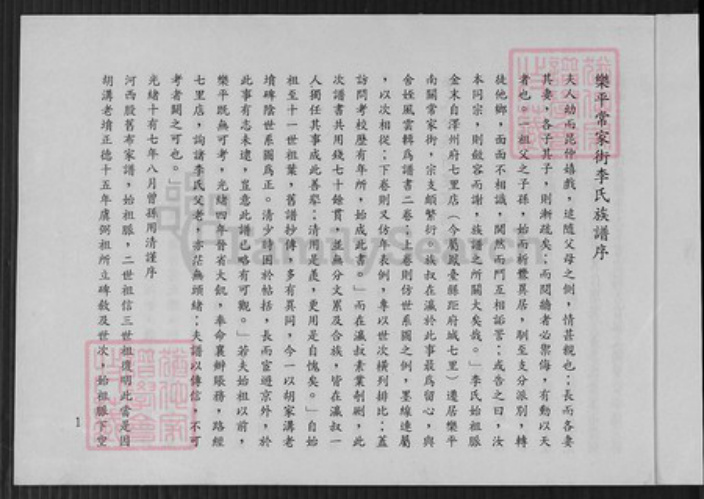 樂平常家街李氏族譜序
夫人幼而昆仲嬉戲，逮隨父母之側，情甚親也；長而各妻
其妻，各子其子，則漸疏矣；而鬩牆者必禦侮，有動以天
者也。一祖父之子孫，始而析爨異居，馴至支分派別，轉
徙他鄉，面面不相識，鬨然而鬥互相詬詈；或告之曰，汝
本同宗，則斂容而謝，族譜之所關大矣哉。」李氏始祖賑
金末自澤州府七里店（今屬鳳臺縣距府城七里）遷居樂平
南關常家街，宗支頗繁衍。族叔在瀛於此事最爲留心，與
舍姪風雲輯爲譜書二卷：上卷則仿世系圖之例，墨線連屬
，以次相從；下卷則又仿年表例，專以世次橫列排比；蓋
訪問考校歷有年所，始成此書。」而在瀛叔素業制剛，此
次譜書共用錢七十餘貫，並無分文累及合族，皆在瀛叔一
人獨任其事成此善擧：清用是羨，更用是自愧矣。」自始
祖至十一世祖葉，舊譜抄傳，多有異同，今一以胡家溝老
墳碑陰世系圖爲正。清少時困於帖括，長而宦遊京外，於
此事有志未逮，豈意此譜也略有可觀。」若夫始祖以前，
樂平既無可考，光緒四年晉省大飢，奉命襄辦賑務，路經
七里店，詢諸李氏父老，亦茫無頭緒：夫譜以傳信，不可
考者闕之可也。」
光緒十有七年八月曾孫用清謹序
河西股舊布家譜，始祖賑，二世祖信三世祖復明此當是因
胡溝老墳正德十五年廣弼祖所立碑敘及世次，始祖賑下空
1
FamilySearch